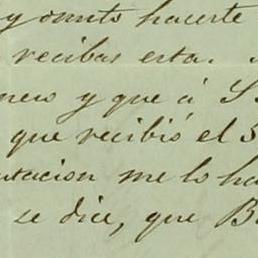 y omito hacerte
recibas esta.
y que á S
que recibió el 5
me lo ha
se dice, que B